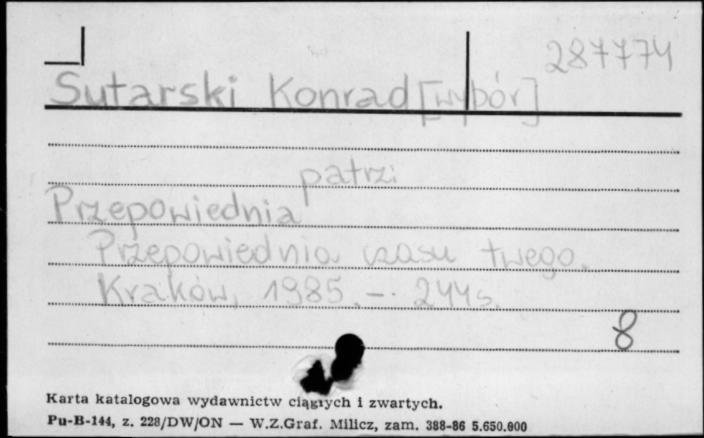 287774
Sutarski Konrad [wybór]
patrz:
Przepowiednia
Przepowiednia czasu twego.
Kraków, 1985. — 244 s.
8
Karta katalogowa wydawnictw ciągłych i zwartych.
Pu-B-144, z. 228/DW/ON — W.Z.Graf. Milicz, zam. 388-86 5.650.000